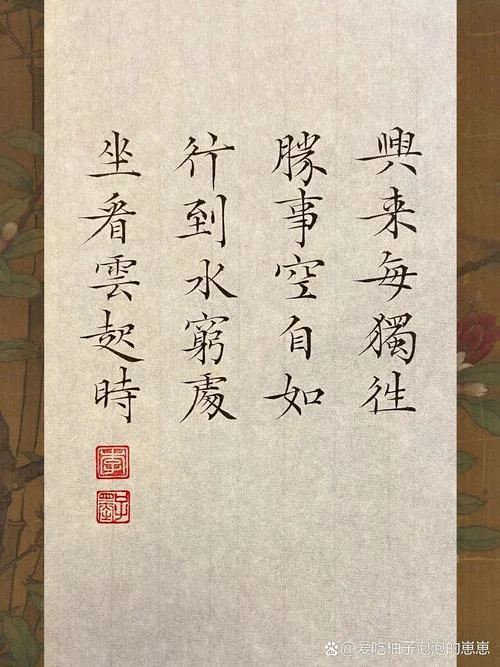 興来每獨往
勝事空自如
行到水窮處
坐看雲起時
李
@爱吃柚子泡泡的崽崽